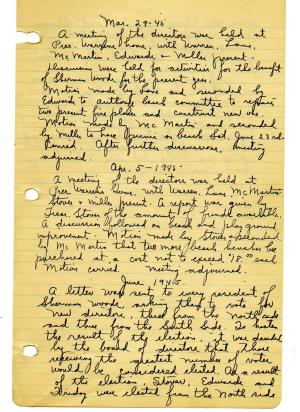 Mar. 29-45
A meeting of the directors was held at
Pres. Warren's home, with Warren, Lane,
McMartin, Edwards & Miller present.
Discussion was held for activities for the benefit
of Sherman Woods for the present year.
Motion made by Lane and seconded by
Edwards to authorize beach committee to repair
two present fire places and construct new one.
Motion made by McMartin and seconded
by Miller to have picnic on beach Sat. June 23rd
Carried. After further discussion, meeting
adjourned.
Apr. 5-1945-
A meeting of the directors was held at
Pres Warren's home, with Warren, Lane McMartin
Stover & Miller present. A report was given by
Treas. Stover of the amount of funds available.
A discussion followed on beach and play ground
improvement. Motion made by Stover & seconded
by Mc Martin that two more beach benches be
purchased at a cost not to exceed each
Motion carried. Meeting adjourned.
June 1945
A letter was sent to every resident of
Sherman woods, asking them to vote for
new directors, three from the North side
and three from the South Side. To hasten
the result of the election, it was decided
by the board of directors that those
receiving the greatest number of votes
would be considered elected. As a result
of the election, Stover, Edwards and
were elected from the North side